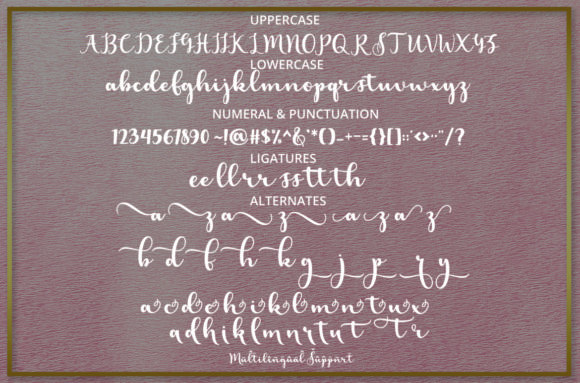 UPPERCASE
ABCDEFGHIJKLMNOPQRSTUVWXYZ
LOWERCASE
abcdefghijklmnopqrstuvwxyz
NUMERAL & PUNCTUATION
1234567890 ~!@#$%^&'*()_+-={}[]::'<>··"/?
LIGATURES
ee ll rr ss tt th
ALTERNATES
a z a z a z a z
b d f h k g j p q y
a c d e h i k l m n t u x
a d h i k l m n r t u t t r
Multilingual Support